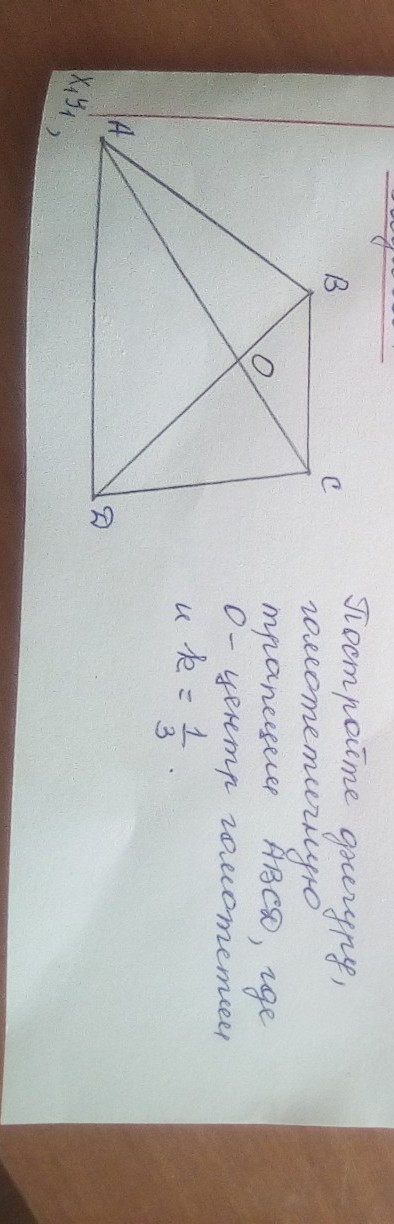 Постройте фигуру,
гомотетичную
трапеции ABCD, где
O - центр гомотетии
и k = 1/3.
B
C
O
A
D
X₁Y₁,